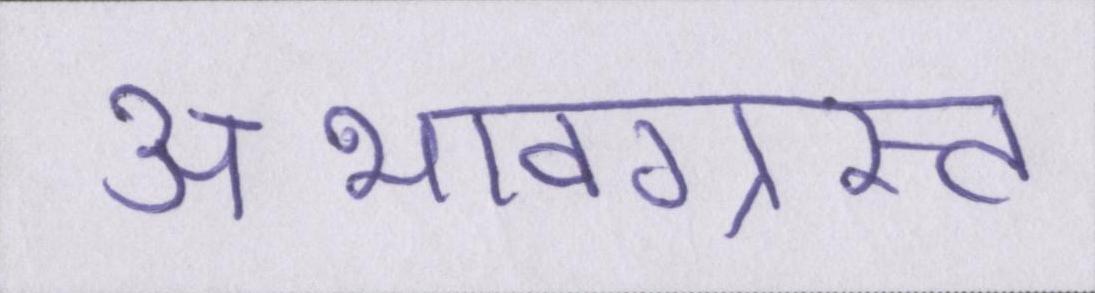 अभावग्रस्त